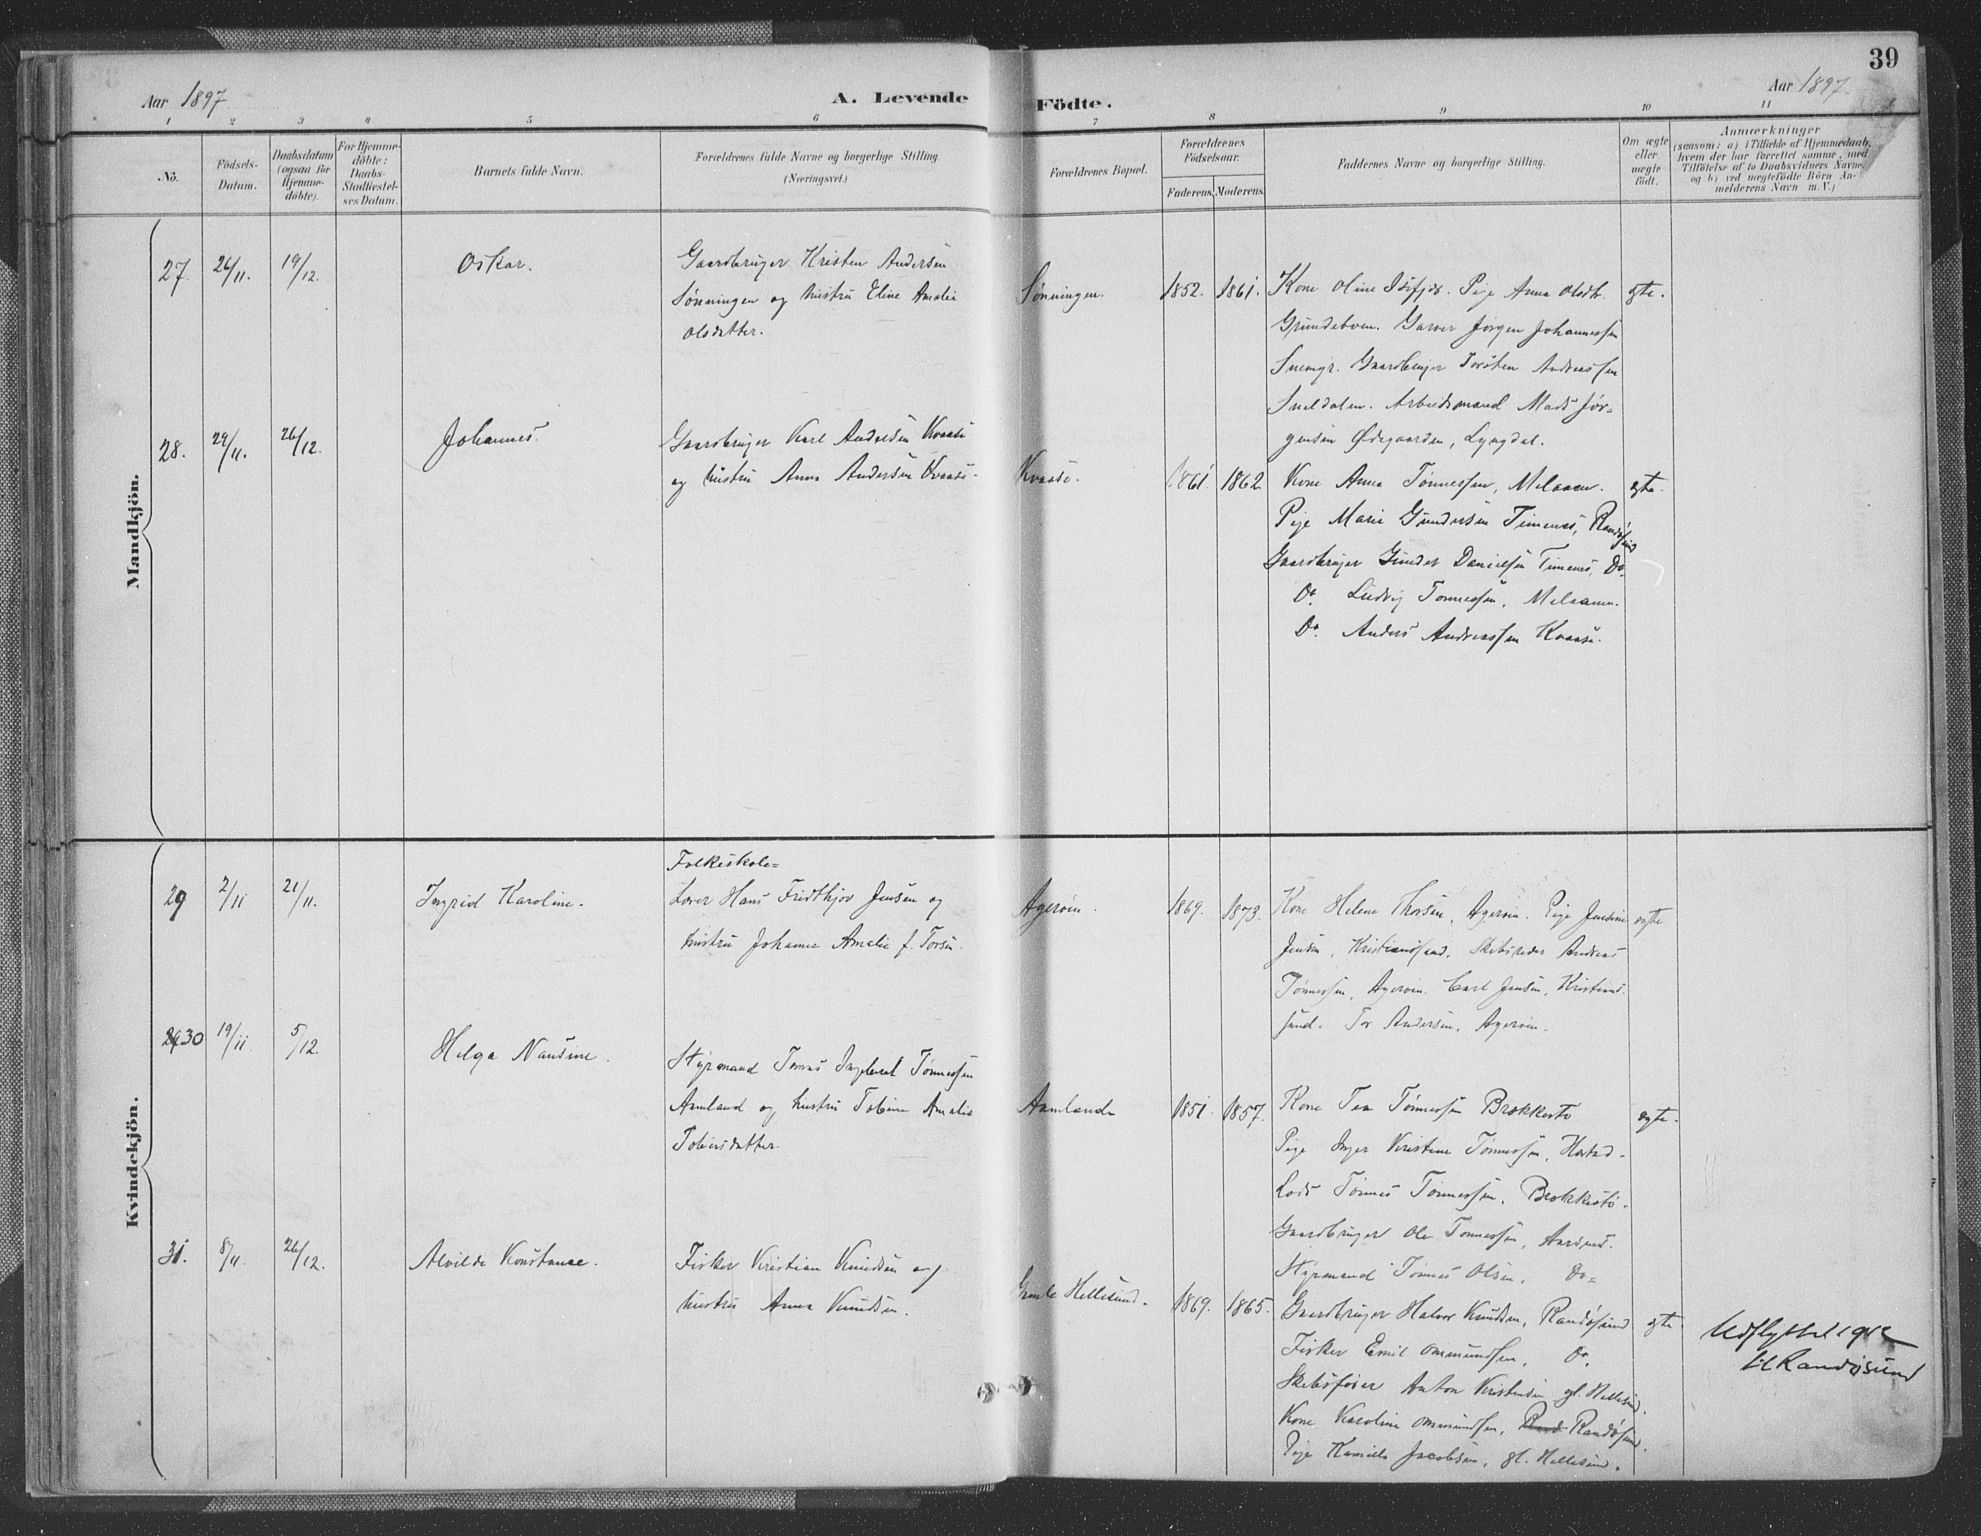 39
Aar 1897.
A. Levende Födte.
Aar 1897.
1 2 3 4 5 6 7 8 9 10 11
No.
Födsels-Datum.
Daabsdatum (ogsaa for Hjemmedöbte).
For Hjemmedöbte: Daabs-Stadfæstelses Datum.
Barnets fulde Navn.
Forældrenes fulde Navne og borgerlige Stilling. (Næringsvei.)
Forældrenes Bopæl.
Forældrenes Födselsaar.
Faderens. Moderens.
Faddernes Navne og borgerlige Stilling.
Om ægte eller uægte födt.
Anmærkninger
(saasom: a) i Tilfælde af Hjemmedaab, hvem der har forrettet samme, med Tilföielse af to Daabsvidners Navne, og b) ved uægtefödte Börn Anmelderens Navn m. V.)
Mandkjön.
27. 26/11. 19/12. Oskar.
Gaardbruger Kristen Andersen
Sønningen og hustru Eline Amalie
Olsdatter.
Sønningen. 1852. 1861.
Kone Oline Pige Anna Olsdtr. egte.
Garver Jørgen Johannessen
Gaardbruger Torsten Andreassen
Sneldalen. Arbeidsmand Mads Jør-
gensen Ødegaarden, Lyngdal.
28. 29/11. 26/12. Johannes.
Gaardbruger Karl Andersen Kvaase
og hustru Anna Andersen Kvaase.
Kvaase. 1861. 1862
Kone Anna Tønnessen, Melaaen. egte.
Pige Marie Gundersen Timenes, Randøsund
Gaardbruger Gunder Danielsen Timenes, Do.
Do. Ludvig Tønnessen, Melaaen.
Do. Anders Andreassen Kvaase.
Kvindekjön.
29 2/11 21/11. Ingrid Karoline.
Folkeskole=
Lærer Hans Fridthjov Jensen og
hustru Johanne Amalie f. Torsen.
Agerøen. 1869. 1873.
Kone Helene Thorsen, Agerøen. Pige Jensine egte
Jensen, Kristianssand. Skibsreder Andreas
Tønnessen, Agerøen. Carl Jensen, Kristians-
sund. Tor Andersen, Agerøen.
30 19/11. 5/12. Helga Nansine.
Styrmand Tomas Ingebret Tønnessen
Aamland og hustru Tobine Amalie
Tobiasdatter.
Aamland 1851. 1857.
Kone Tea Tønnessen Brækkestø egte.
Pige Inger Kristine Tønnessen,
Lods Tønnes Tønnessen, Brækkestø.
Gaardbruger Ole Tønnessen,
Styrmand Tønnes Olsen, Do=
31. 8/11. 26/12. Alvilde Konstance.
Fisker Kristian Knudsen og
hustru Anna Knudsen.
Gamle Hellesund. 1869. 1865.
Gaardbruger Halvor Knudsen, Randøsund egte
Fisker Emil Ommundsen, Do.
Skibsfører Anton Kristensen gl. Hellesund.
Kone Karoline Ommundsen, Randøsund.
Pige Kamilla Jacobsen, gl. Hellesund.
Udflyttet 1912
til Randøsund